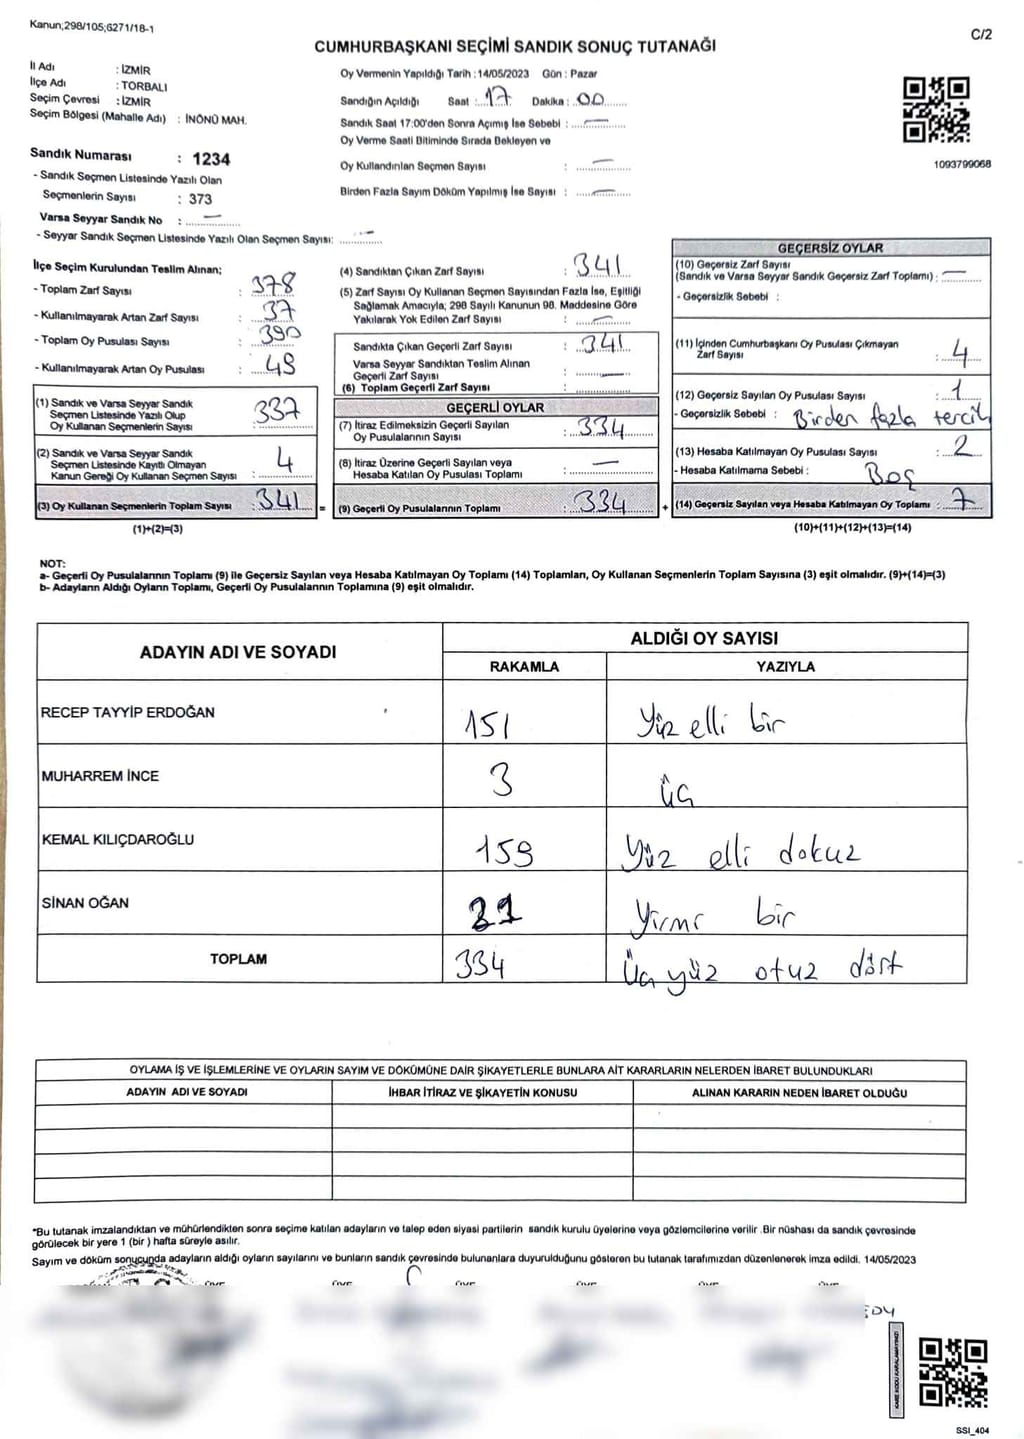 Kanun;298/105;6271/18-1
C/2
CUMHURBAŞKANI SEÇİMİ SANDIK SONUÇ TUTANAĞI
İl Adı : İZMİR
İlçe Adı : TORBALI
Seçim Çevresi : İZMİR
Seçim Bölgesi (Mahalle Adı) : İNÖNÜ MAH.
Sandık Numarası : 1234
- Sandık Seçmen Listesinde Yazılı Olan
Seçmenlerin Sayısı : 373
Varsa Seyyar Sandık No : —
- Seyyar Sandık Seçmen Listesinde Yazılı Olan Seçmen Sayısı: —
Oy Vermenin Yapıldığı Tarih : 14/05/2023 Gün : Pazar
Sandığın Açıldığı Saat : 17 Dakika : 00
Sandık Saat 17:00'den Sonra Açımış İse Sebebi : —
Oy Verme Saati Bitiminde Sırada Bekleyen ve
Oy Kullandırılan Seçmen Sayısı : —
Birden Fazla Sayım Döküm Yapılmış İse Sayısı : —
1093799068
İlçe Seçim Kurulundan Teslim Alınan;
- Toplam Zarf Sayısı : 378
- Kullanılmayarak Artan Zarf Sayısı : 37
- Toplam Oy Pusulası Sayısı : 390
- Kullanılmayarak Artan Oy Pusulası : 49
(1) Sandık ve Varsa Seyyar Sandık
Seçmen Listesinde Yazılı Olup
Oy Kullanan Seçmenlerin Sayısı : 337
(2) Sandık ve Varsa Seyyar Sandık
Seçmen Listesinde Kayıtlı Olmayan
Kanun Gereği Oy Kullanan Seçmen Sayısı : 4
(3) Oy Kullanan Seçmenlerin Toplam Sayısı : 341 =
(1)+(2)=(3)
(4) Sandıktan Çıkan Zarf Sayısı : 341
(5) Zarf Sayısı Oy Kullanan Seçmen Sayısından Fazla İse, Eşitliği
Sağlamak Amacıyla; 298 Sayılı Kanunun 98. Maddesine Göre
Yakılarak Yok Edilen Zarf Sayısı : —
Sandıkta Çıkan Geçerli Zarf Sayısı : 341
Varsa Seyyar Sandıktan Teslim Alınan
Geçerli Zarf Sayısı : —
(6) Toplam Geçerli Zarf Sayısı :
GEÇERLİ OYLAR
(7) İtiraz Edilmeksizin Geçerli Sayılan
Oy Pusulalarının Sayısı : 334
(8) İtiraz Üzerine Geçerli Sayılan veya
Hesaba Katılan Oy Pusulası Toplamı : —
(9) Geçerli Oy Pusulalarının Toplamı : 334 +
GEÇERSİZ OYLAR
(10) Geçersiz Zarf Sayısı
(Sandık ve Varsa Seyyar Sandık Geçersiz Zarf Toplamı) : —
- Geçersizlik Sebebi :
(11) İçinden Cumhurbaşkanı Oy Pusulası Çıkmayan
Zarf Sayısı : 4
(12) Geçersiz Sayılan Oy Pusulası Sayısı : 1
- Geçersizlik Sebebi : Birden fazla tercih
(13) Hesaba Katılmayan Oy Pusulası Sayısı : 2
- Hesaba Katılmama Sebebi : Boş
(14) Geçersiz Sayılan veya Hesaba Katılmayan Oy Toplamı : 7
(10)+(11)+(12)+(13)=(14)
NOT:
a- Geçerli Oy Pusulalarının Toplamı (9) ile Geçersiz Sayılan veya Hesaba Katılmayan Oy Toplamı (14) Toplamları, Oy Kullanan Seçmenlerin Toplam Sayısına (3) eşit olmalıdır. (9)+(14)=(3)
b- Adayların Aldığı Oyların Toplamı, Geçerli Oy Pusulalarının Toplamına (9) eşit olmalıdır.
ADAYIN ADI VE SOYADI
ALDIĞI OY SAYISI
RAKAMLA YAZIYLA
RECEP TAYYİP ERDOĞAN 151 Yüz elli bir
MUHARREM İNCE 3 üç
KEMAL KILIÇDAROĞLU 159 Yüz elli dokuz
SİNAN OĞAN 21 Yirmi bir
TOPLAM 334 Üç yüz otuz dört
OYLAMA İŞ VE İŞLEMLERİNE VE OYLARIN SAYIM VE DÖKÜMÜNE DAİR ŞİKAYETLERLE BUNLARA AİT KARARLARIN NELERDEN İBARET BULUNDUKLARI
ADAYIN ADI VE SOYADI İHBAR İTİRAZ VE ŞİKAYETİN KONUSU ALINAN KARARIN NEDEN İBARET OLDUĞU
*Bu tutanak imzalandıktan ve mühürlendikten sonra seçime katılan adayların ve talep eden siyasi partilerin sandık kurulu üyelerine veya gözlemcilerine verilir .Bir nüshası da sandık çevresinde
görülecek bir yere 1 (bir ) hafta süreyle asılır.
Sayım ve döküm sonucunda adayların aldığı oyların sayılarını ve bunların sandık çevresinde bulunanlara duyurulduğunu gösteren bu tutanak tarafımızdan düzenlenerek imza edildi. 14/05/2023
KARE KODU KARALAMAYINIZ!
SSI_404